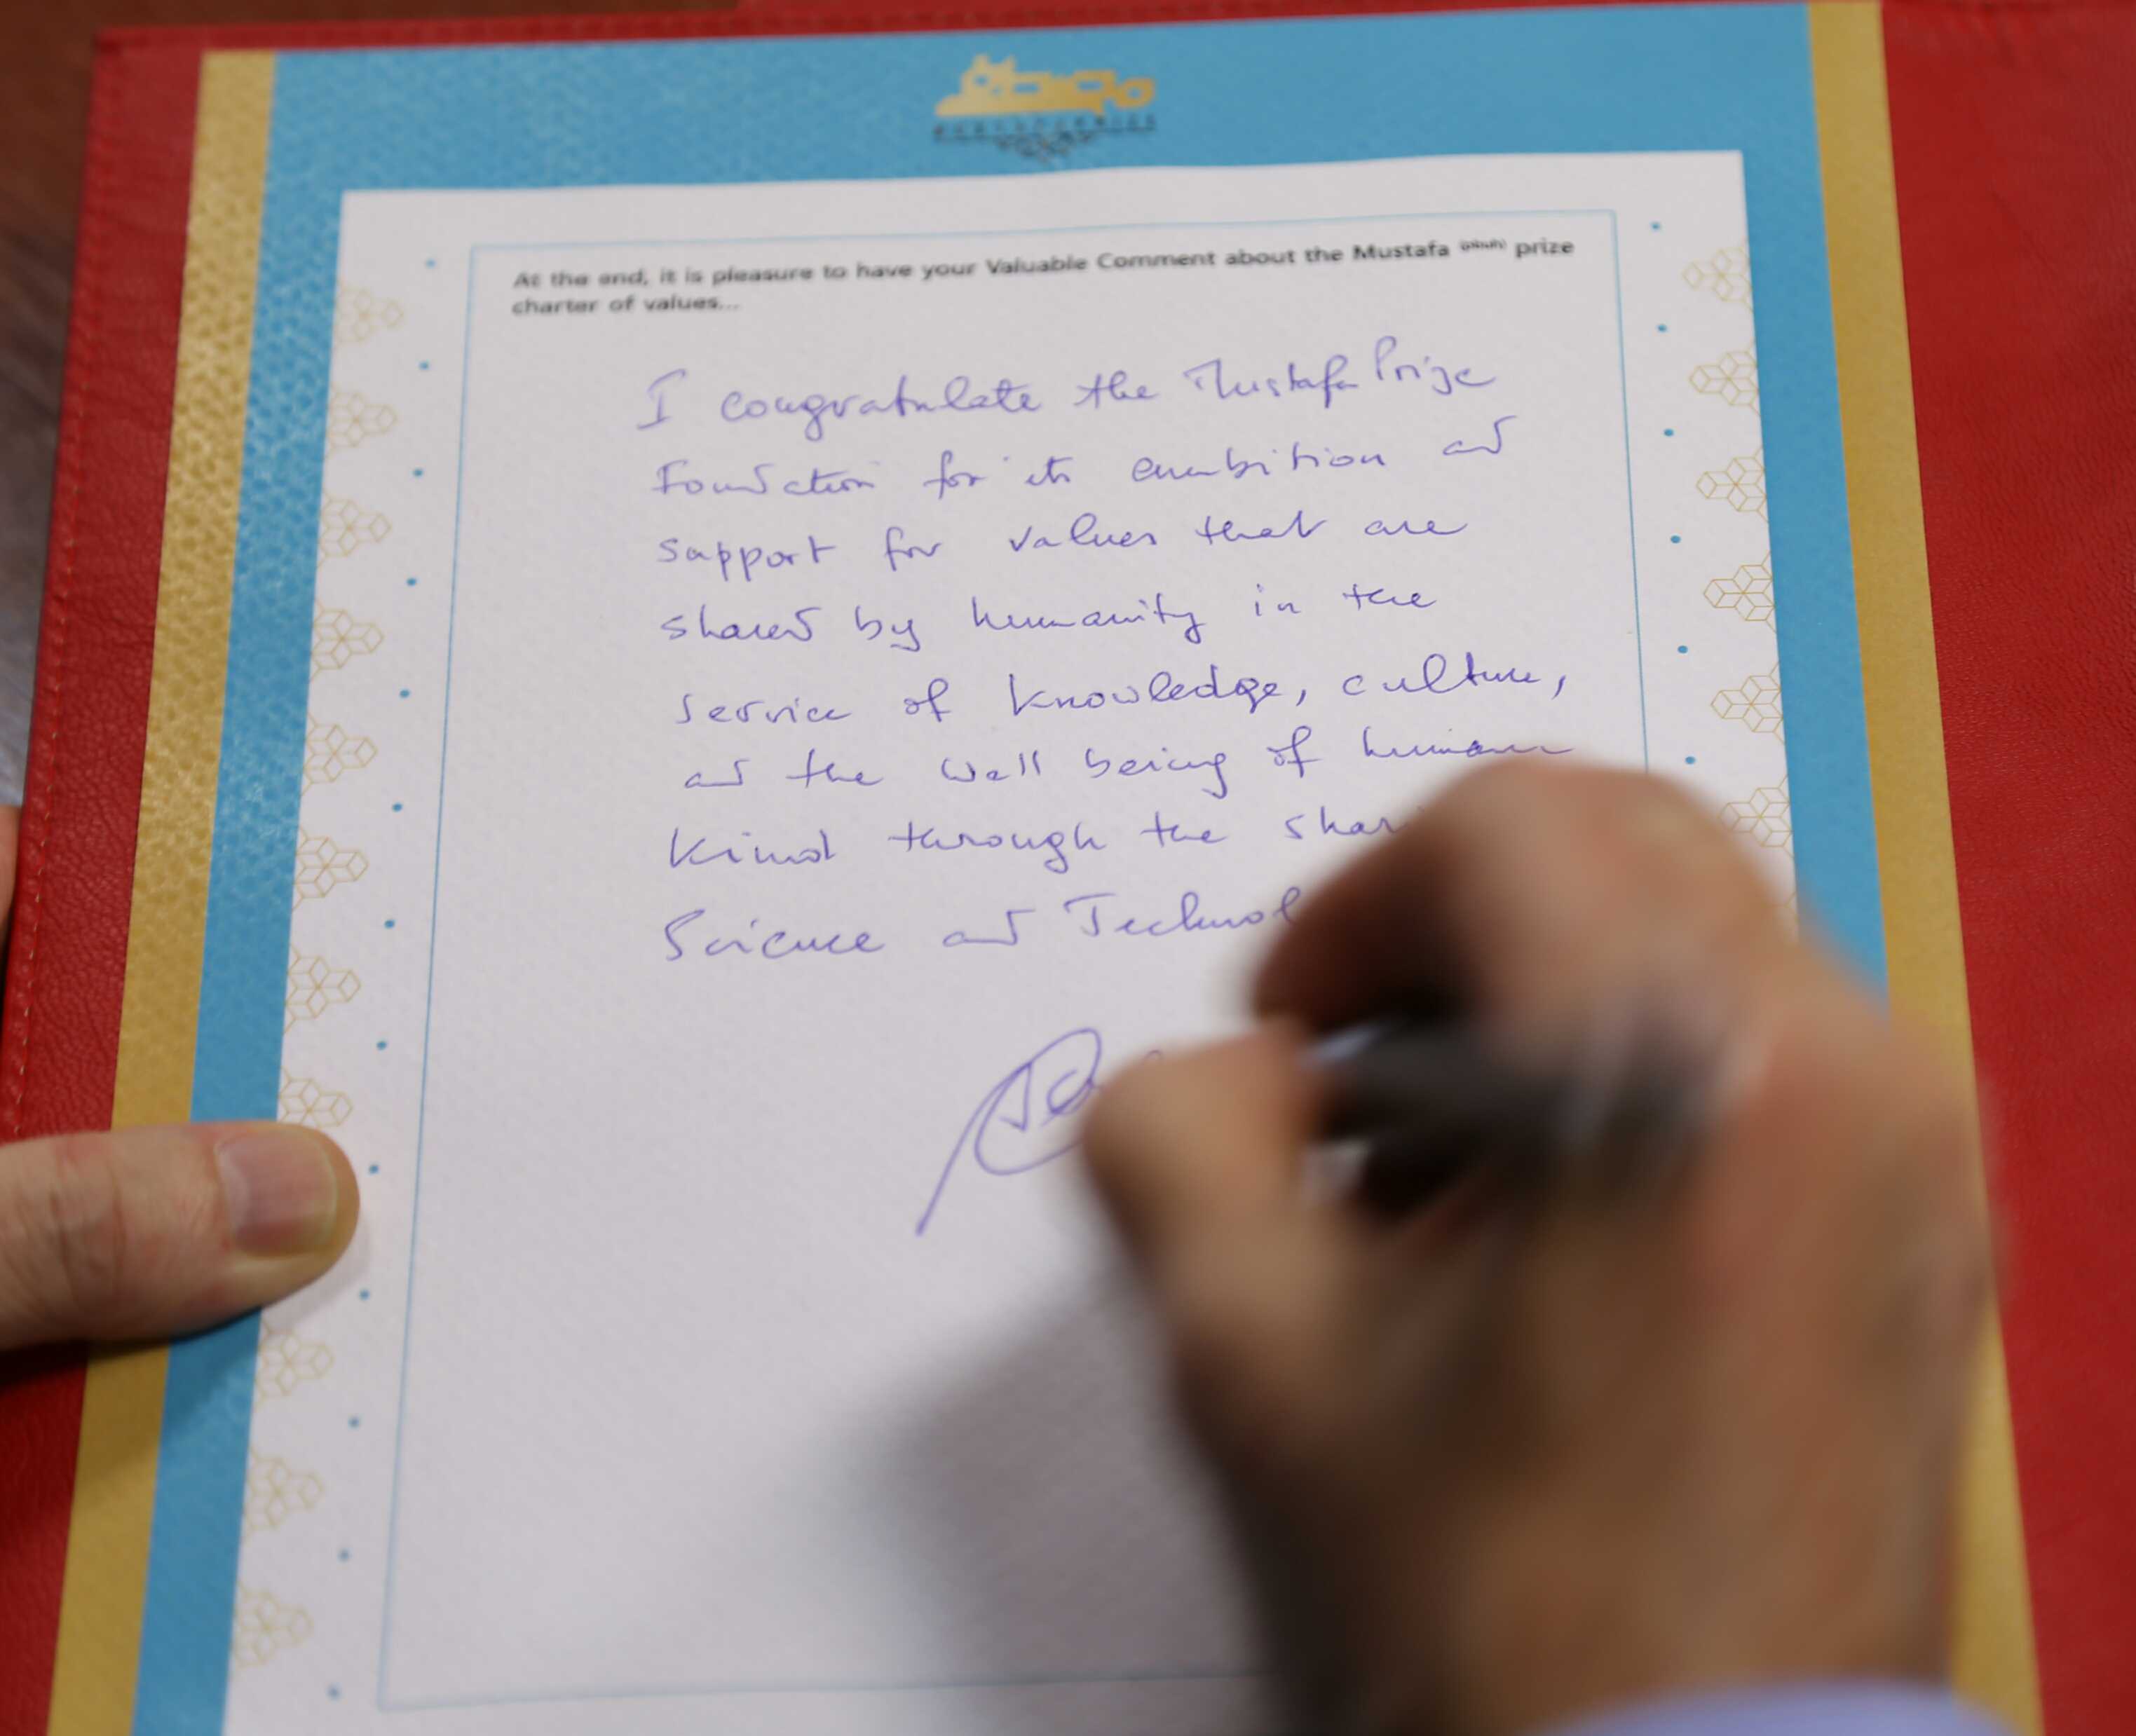 At the end, it is pleasure to have your Valuable Comment about the Mustafa (pbuh) prize
charter of values...
I congratulate the Mustafa Prize
Foundation for its ambition and
support for values that are
shared by humanity in the
service of knowledge, culture,
and the well being of human
kind through the shar
Science and Technol